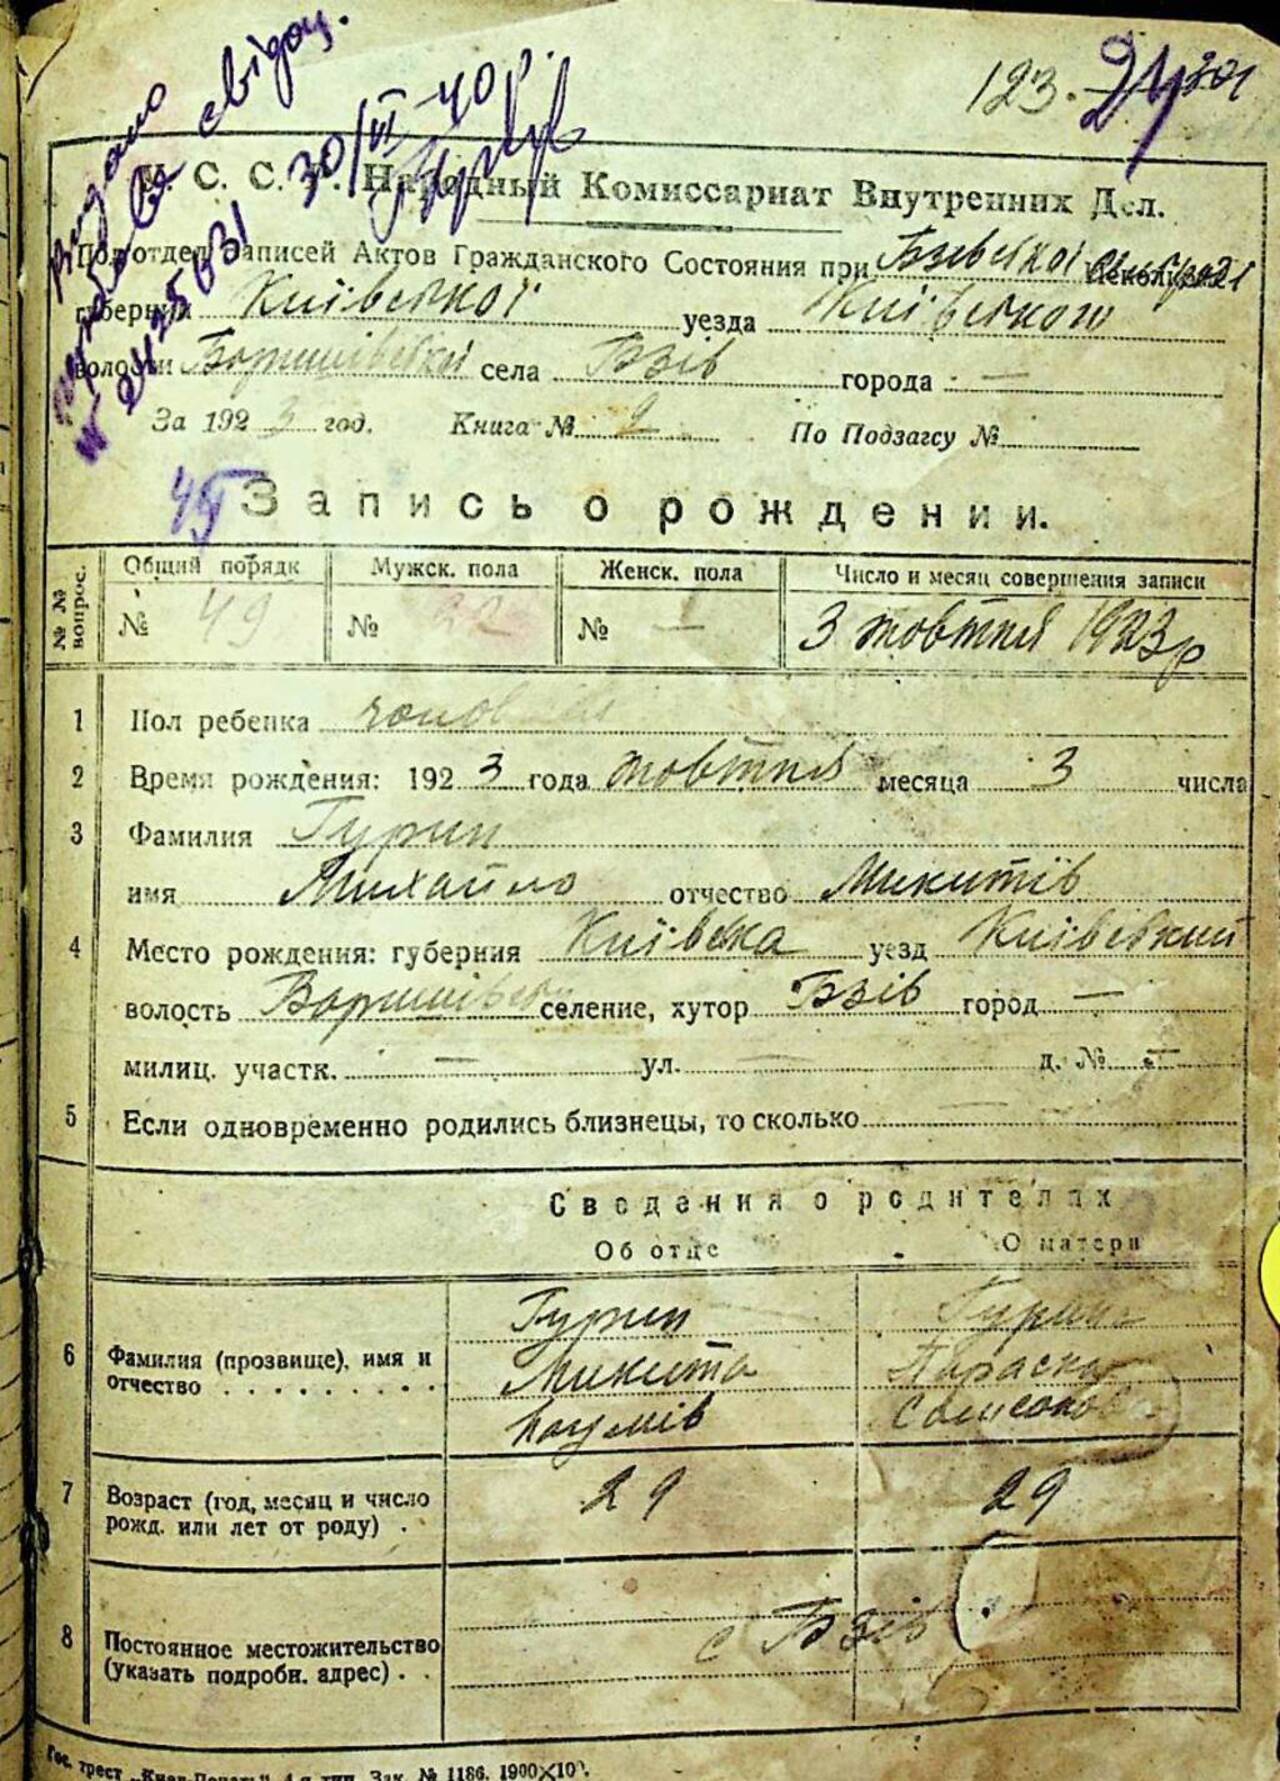 видано
свідоц.
30/VI 40р.
№ 2425631
123. 24
У. С. С. Р. Народный Комиссариат Внутренних Дел.
Подотдел Записей Актов Гражданского Состояния при Бзівської сільради
губернии Київської уезда Київського
волости Баришівської села Бзів города —
За 1923 год. Книга № 2 По Подзагсу №
45
Запись о рождении.
№ № вопрос. Общий порядк Мужск. пола Женск. пола Число и месяц совершения записи
№ 49 № 22 № — 3 жовтня 1923р
1 Пол ребенка чолов
2 Время рождения: 1923 года жовтня месяца 3 числа
3 Фамилия Гурин
имя Михайло отчество Микитів
4 Место рождения: губерния Київська уезд Київський
волость Баришівськ селение, хутор Бзів город —
милиц. участк. — ул. — д. № —
5 Если одновременно родились близнецы, то сколько —
Сведения о родителях
Об отце О матери
6 Фамилия (прозвище), имя и отчество Гурин Гурин
Микита Параска
Кузьмів Самсонов
7 Возраст (год, месяц и число рожд. или лет от роду) 29 29
8 Постоянное местожительство (указать подробн. адрес) с Бзів
Гос. трест „Киев-Печать" 4-я тип. Зак. № 1186. 1900×10.